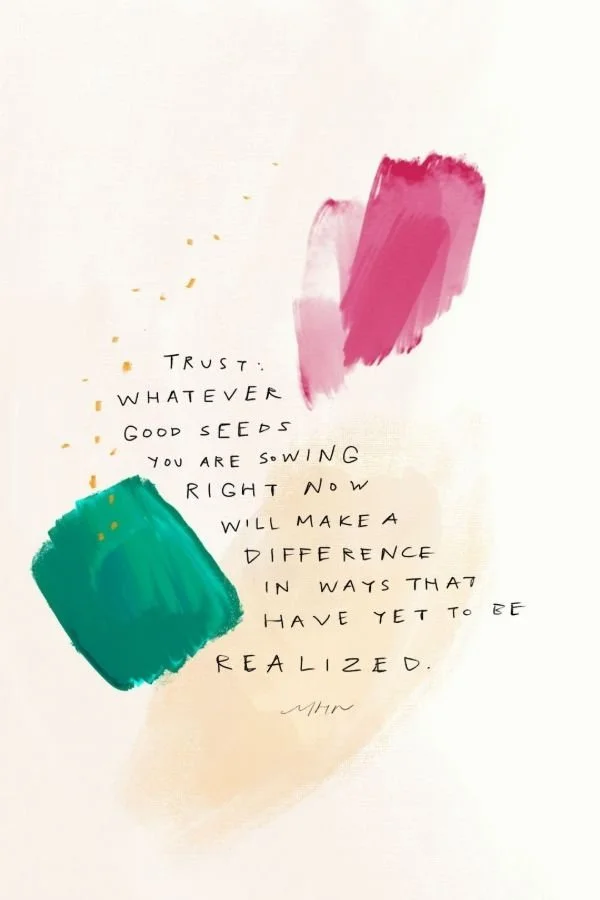 TRUST:
WHATEVER
GOOD SEEDS
YOU ARE SOWING
RIGHT NOW
WILL MAKE A
DIFFERENCE
IN WAYS THAT
HAVE YET TO BE
REALIZED.
MHN